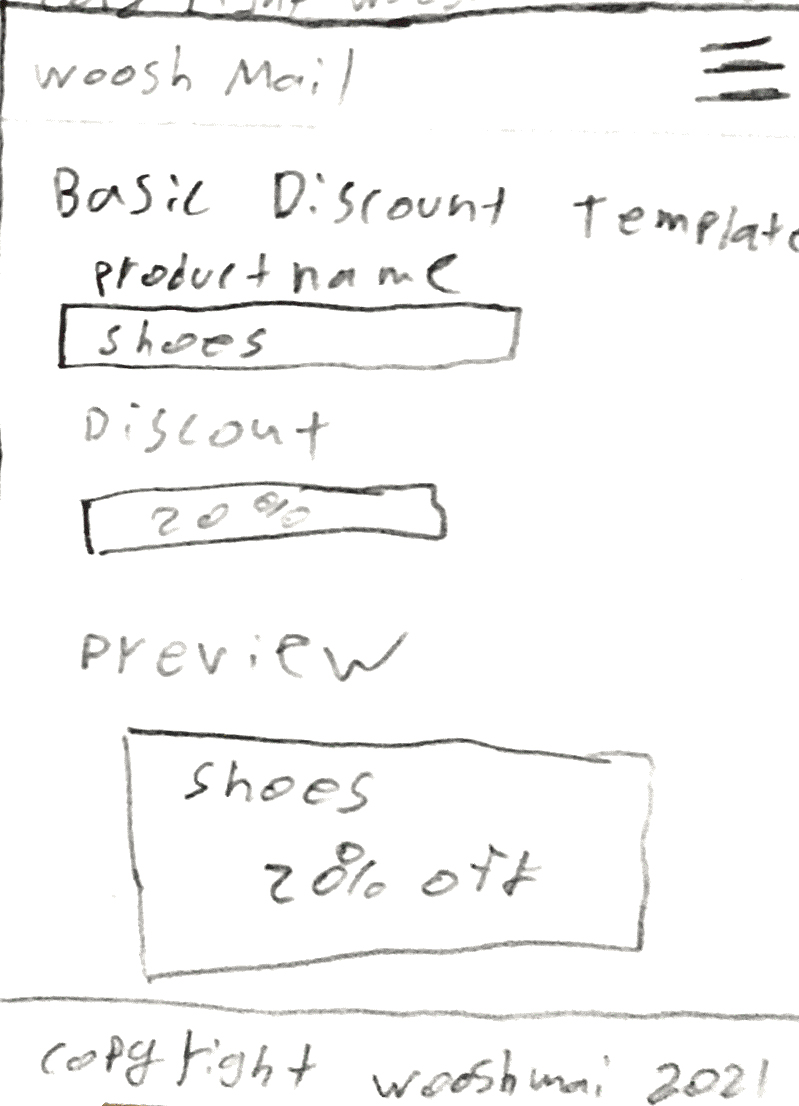 woosh Mail
Basic Discount Template
product name
shoes
Discount
20%
preview
shoes
20% off
copyright wooshmai 2021